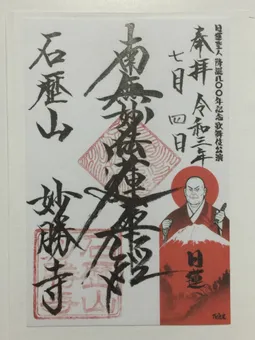 日蓮聖人降誕八〇〇年記念歌舞伎公演
奉拝 令和三年
七月 四日
南無妙法蓮華経
石歴山
妙勝寺
日蓮